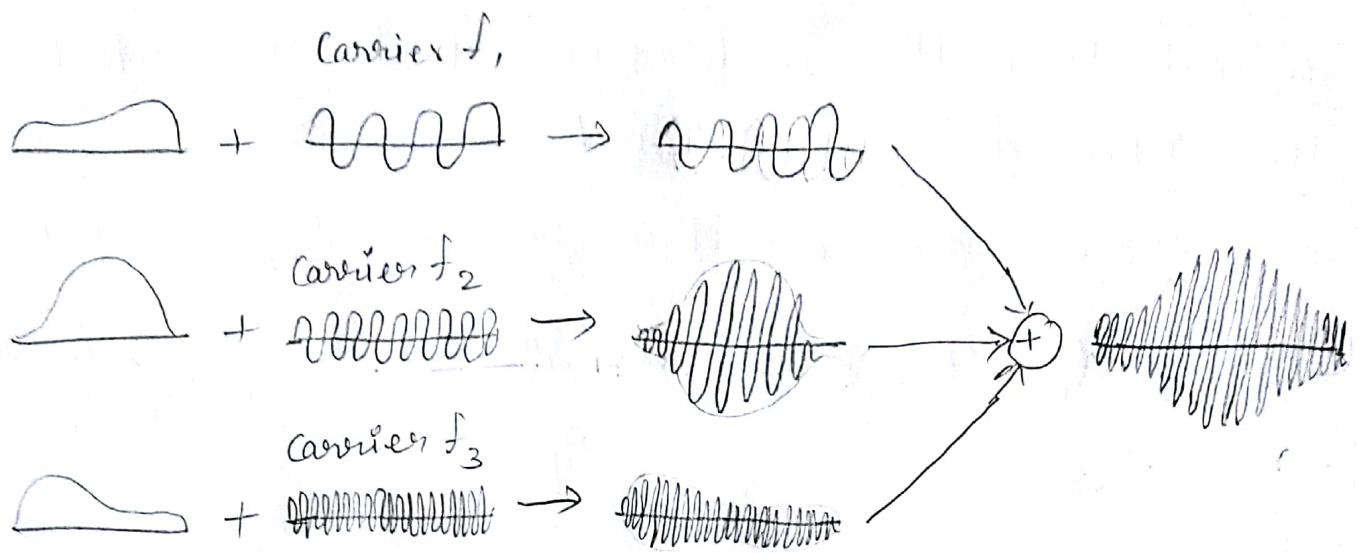 Carrier f1
+ →
Carrier f2
+ → +
Carrier f3
+ →